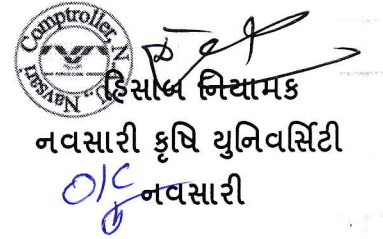 Comptroller, N.
Navsari
હિસાબ નિયામક
નવસારી કૃષિ યુનિવર્સિટી
O/C નવસારી